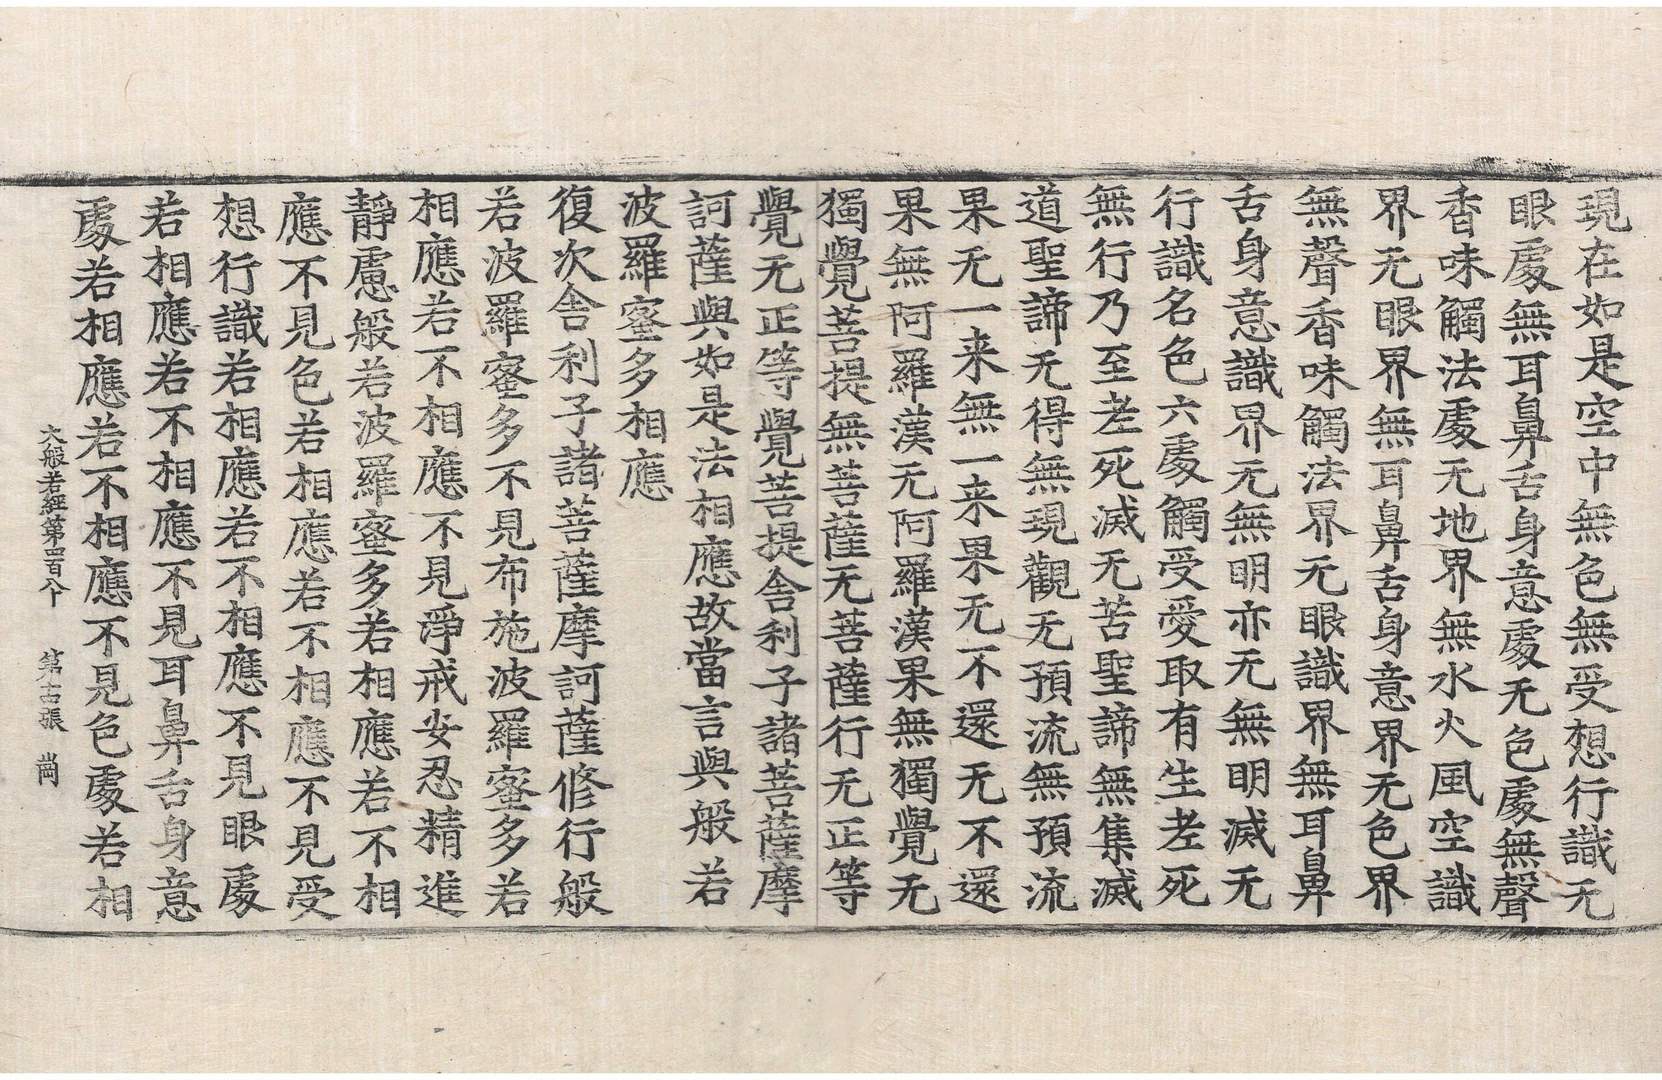 現在如是空中無色無受想行識无
眼處無耳鼻舌身意處无色處無聲
香味觸法處无地界無水火風空識
界无眼界無耳鼻舌身意界无色界
無聲香味觸法界无眼識界無耳鼻
舌身意識界无無明亦无無明滅无
行識名色六處觸受愛取有生老死
無行乃至老死滅无苦聖諦無集滅
道聖諦无得無現觀无預流無預流
果无一来無一来果无不還无不還
果無阿羅漢无阿羅漢果無獨覺无
獨覺菩提無菩薩无菩薩行无正等
覺无正等覺菩提舍利子諸菩薩摩
訶薩與如是法相應故當言與般若
波羅蜜多相應
復次舍利子諸菩薩摩訶薩修行般
若波羅蜜多不見布施波羅蜜多若
相應若不相應不見淨戒安忍精進
靜慮般若波羅蜜多若相應若不相
應不見色若相應若不相應不見受
想行識若相應若不相應不見眼處
若相應若不相應不見耳鼻舌身意
處若相應若不相應不見色處若相
大般若經第四百 第十四張 崗